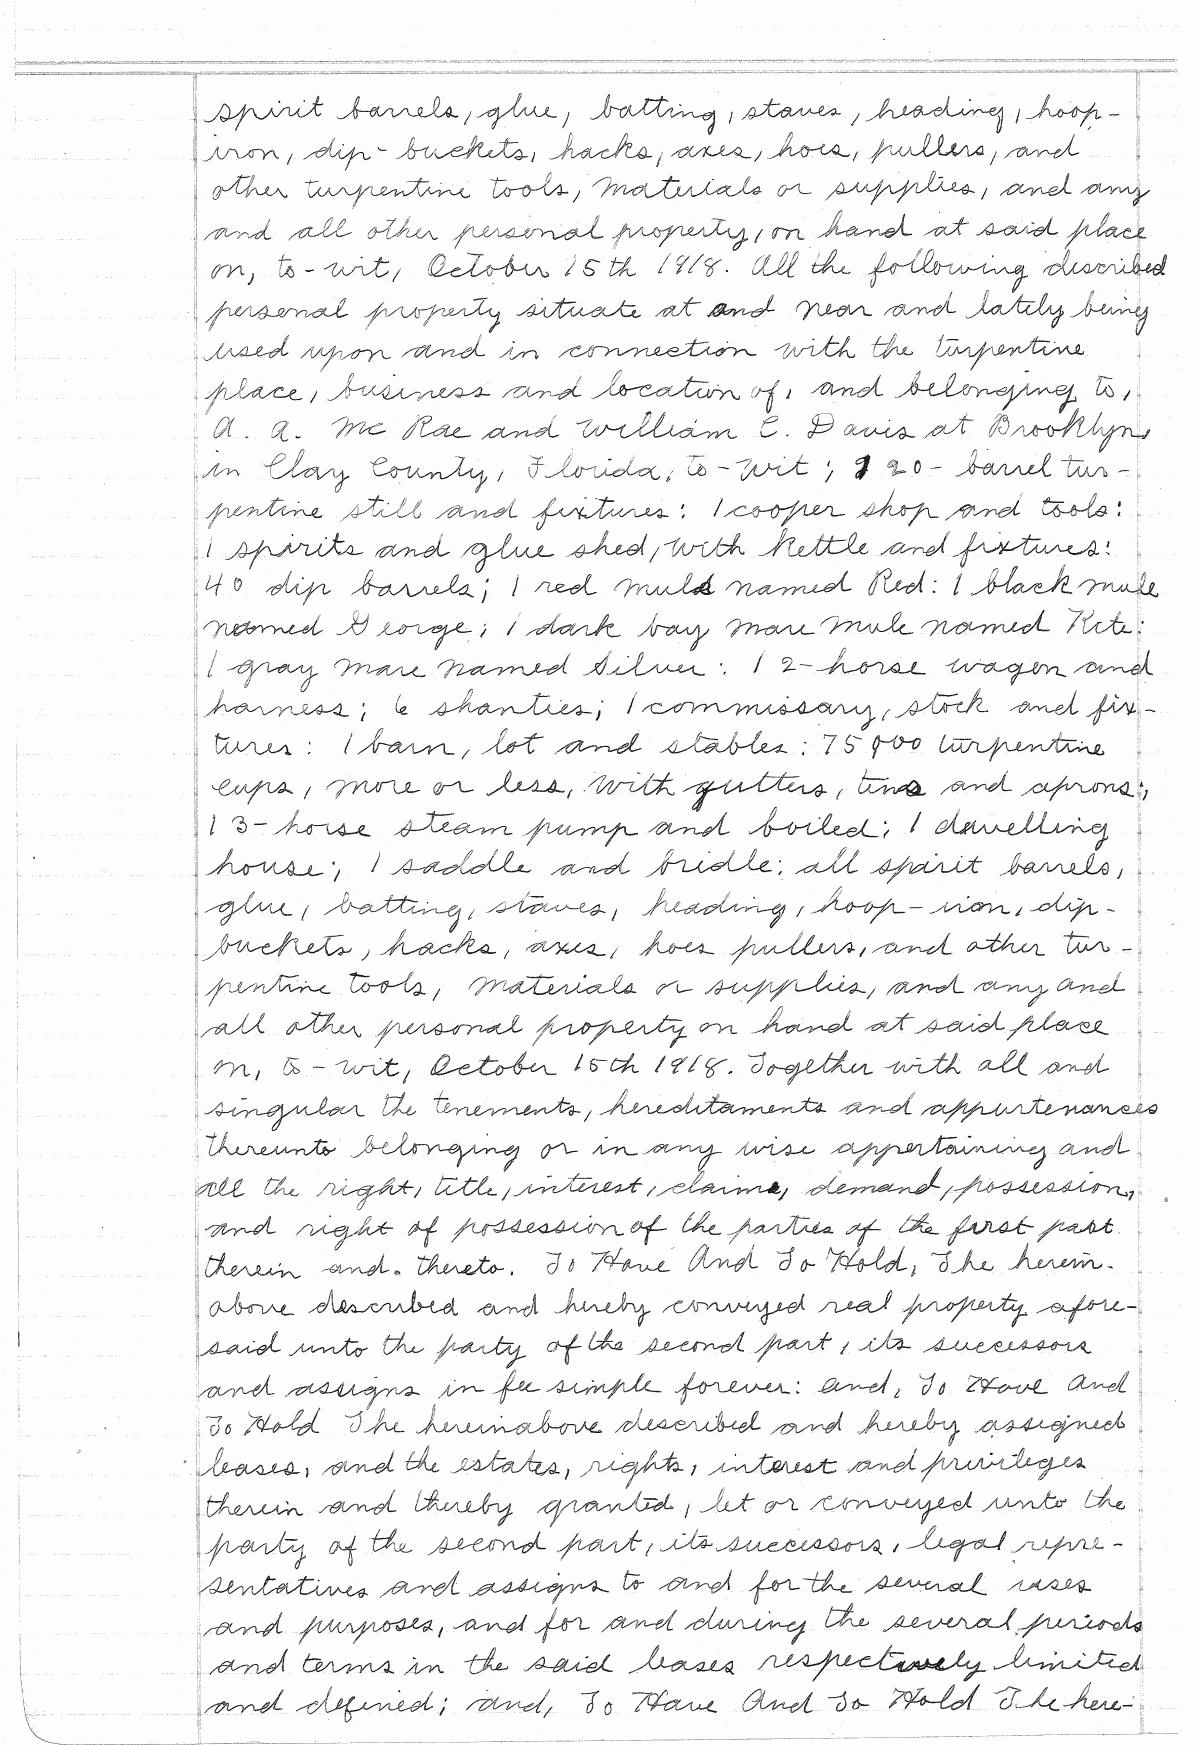 spirit barrels, glue, batting, staves, heading, hoop-
iron, dip- buckets, hacks, axes, hoes, pullers, and
other turpentine tools, materials or supplies, and any
and all other personal property, on hand at said place
on, to-wit, October 15th 1918. All the following described
personal property situate at and near and lately being
used upon and in connection with the turpentine
place, business and location of, and belonging to,
A. A. McRae and William C. Davis at Brooklyn,
in Clay County, Florida, to-wit; 1 20- barrel tur-
pentine still and fixtures: 1 cooper shop and tools:
1 spirits and glue shed, with kettle and fixtures:
40 dip barrels; 1 red mule named Red: 1 black mule
named George; 1 dark bay mare mule named Kite:
1 gray mare named Silver: 1 2-horse wagon and
harness; 6 shanties; 1 commissary, stock and fix-
tures: 1 barn, lot and stables: 75000 turpentine
cups, more or less, with gutters, tins and aprons;
1 3-horse steam pump and boiled; 1 dwelling
house; 1 saddle and bridle: all spirit barrels,
glue, batting, staves, heading, hoop-iron, dip-
buckets, hacks, axes, hoes pullers, and other tur-
pentine tools, materials or supplies, and any and
all other personal property on hand at said place
on, to-wit, October 15th 1918. Together with all and
singular the tenements, hereditaments and appurtenances
thereunto belonging or in any wise appertaining and
all the right, title, interest, claim, demand, possession,
and right of possession of the parties of the first part
therein and. thereto. To Have And To Hold, The herein-
above described and hereby conveyed real property afore-
said unto the party of the second part, its successors
and assigns in fee simple forever: and, To Have And
To Hold The hereinabove described and hereby assigned
leases, and the estates, rights, interest and privileges
therein and thereby granted, let or conveyed unto the
party of the second part, its successors, legal repre-
sentatives and assigns to and for the several uses
and purposes, and for and during the several periods
and terms in the said leases respectively limited
and defined; and, To Have And To Hold The here-